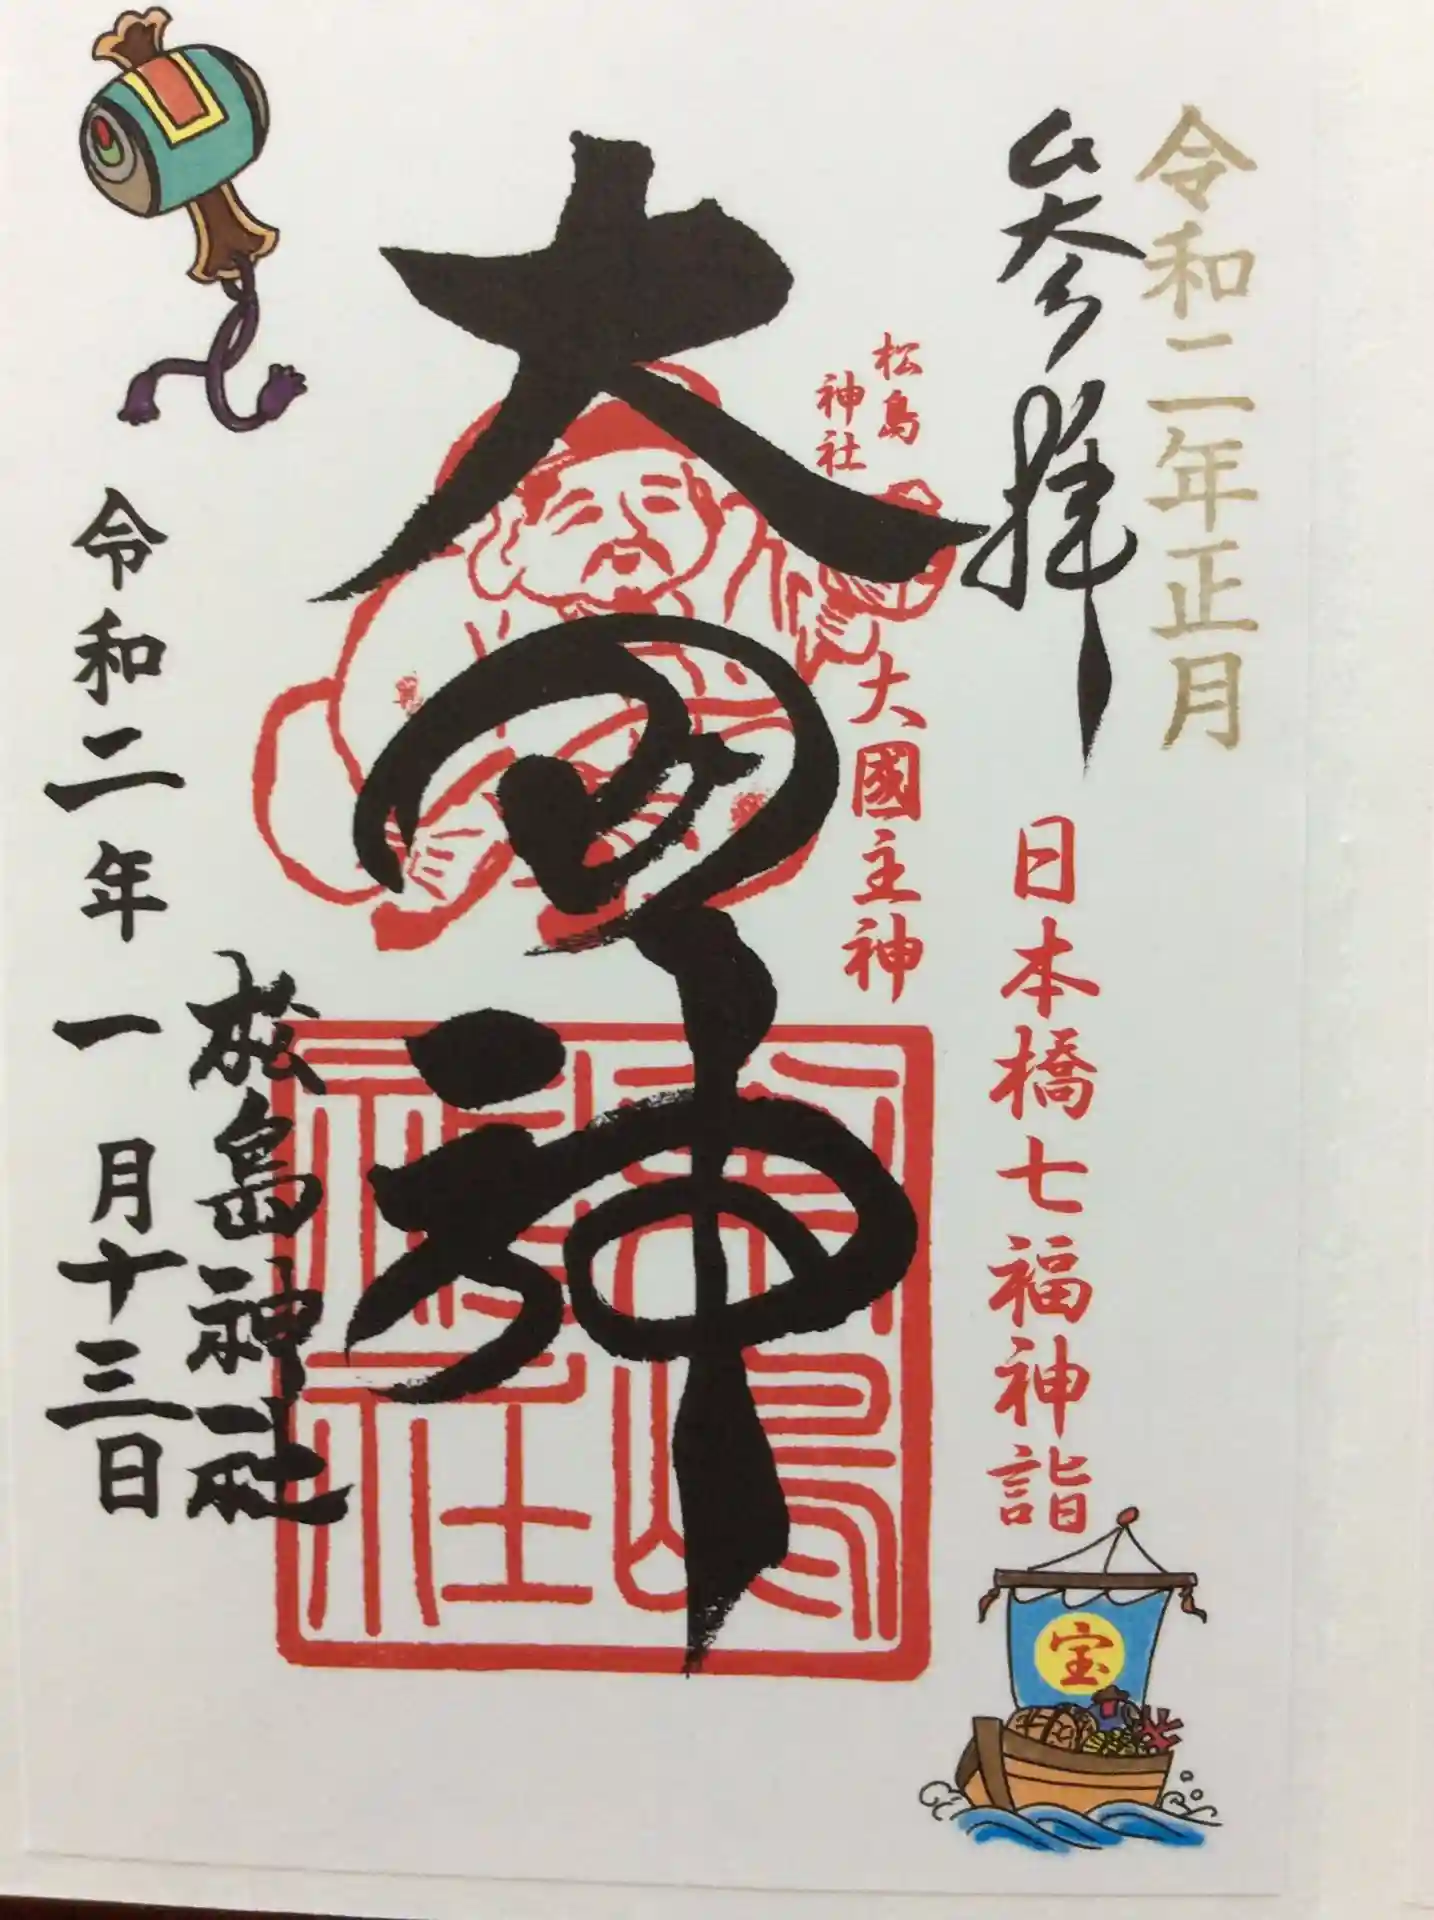 令和二年正月
参拝
日本橋七福神詣
宝
松島
神社
大國主神
大國神
松島神社
松島神社
令和二年一月十三日